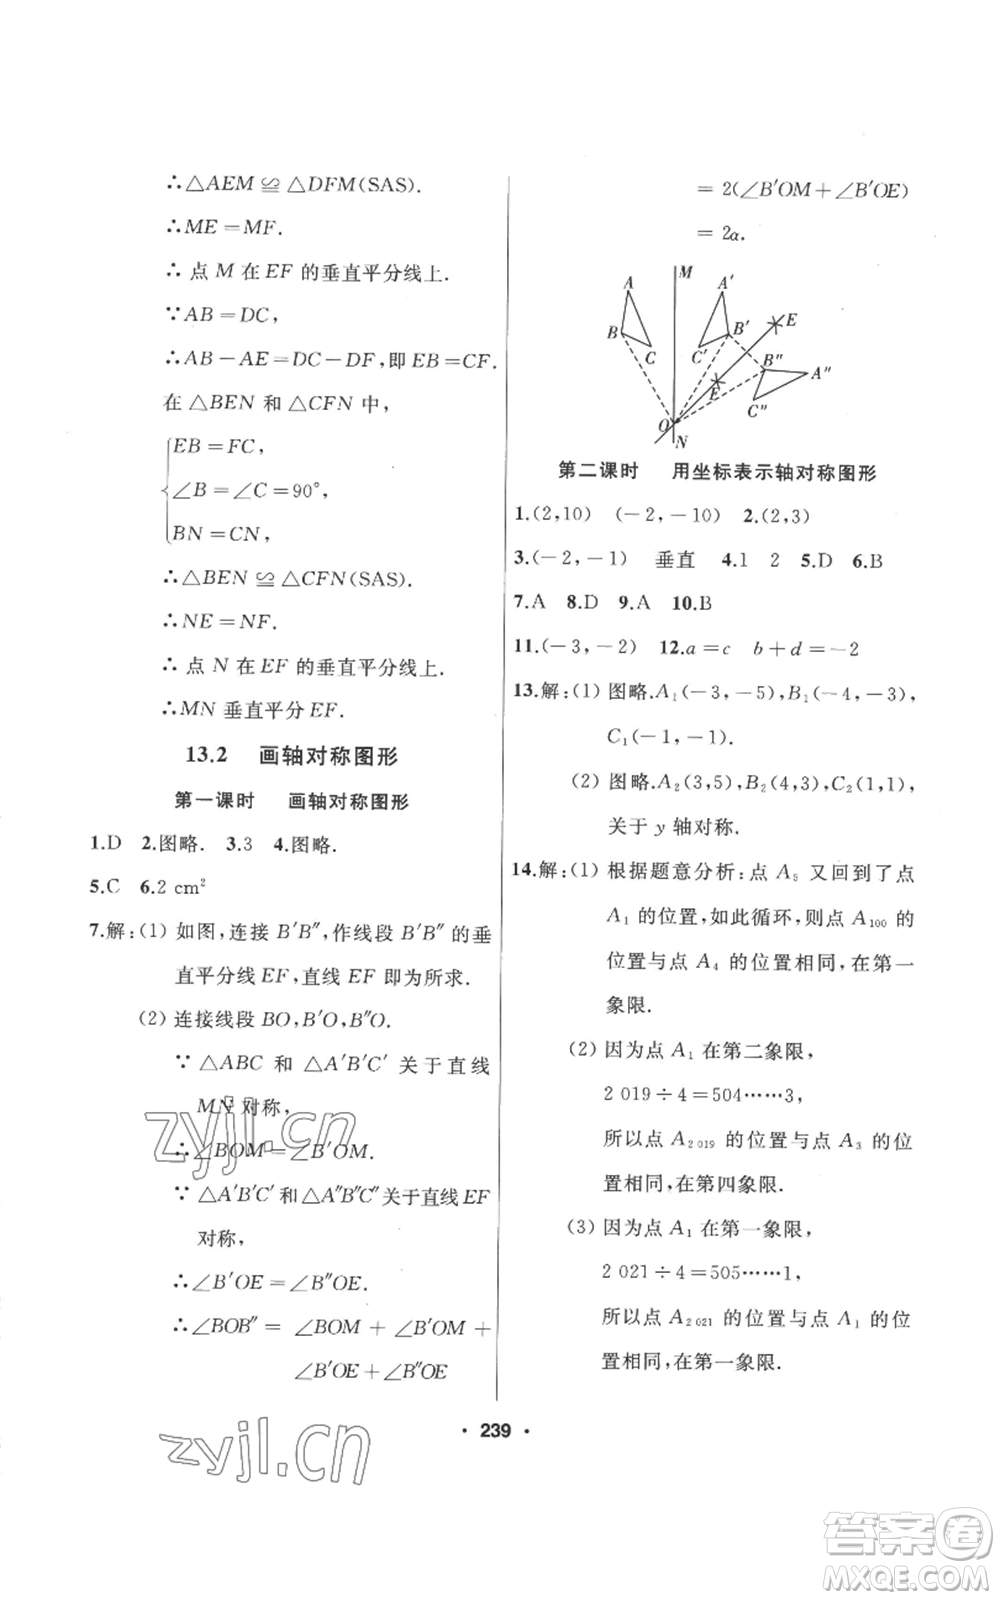 ∴△AEM≌△DFM(SAS).
∴ME=MF.
∴点 M 在 EF 的垂直平分线上.
∵AB=DC,
∴AB-AE=DC-DF,即 EB=CF.
在 △BEN 和 △CFN 中,
EB=FC,
∠B=∠C=90°,
BN=CN,
∴△BEN≌△CFN(SAS).
∴NE=NF.
∴点 N 在 EF 的垂直平分线上.
∴MN 垂直平分 EF.
13.2 画轴对称图形
第一课时 画轴对称图形
1.D 2.图略. 3.3 4.图略.
5.C 6.2 cm²
7.解:(1) 如图,连接 B′B″,作线段 B′B″ 的垂
直平分线 EF,直线 EF 即为所求.
(2) 连接线段 BO,B′O,B″O.
∵ △ABC 和 △A′B′C′ 关于直线
MN 对称,
∴∠BOM=∠B′OM.
∵ △A′B′C′ 和 △A″B″C″ 关于直线 EF
对称,
∴∠B′OE=∠B″OE.
∴∠BOB″ = ∠BOM + ∠B′OM +
∠B′OE+∠B″OE
= 2(∠B′OM+∠B′OE)
= 2α.
A M A′
B B′ E
C C′ B″ A″
E C″
O N
第二课时 用坐标表示轴对称图形
1.(2,10) (-2,-10) 2.(2,3)
3.(-2,-1) 垂直 4.1 2 5.D 6.B
7.A 8.D 9.A 10.B
11.(-3,-2) 12.a=c b+d=-2
13.解:(1) 图略.A₁(-3,-5),B₁(-4,-3),
C₁(-1,-1).
(2) 图略.A₂(3,5),B₂(4,3),C₂(1,1),
关于 y 轴对称.
14.解:(1) 根据题意分析:点 A₅ 又回到了点
A₁ 的位置,如此循环,则点 A₁₀₀ 的
位置与点 A₄ 的位置相同,在第一
象限.
(2) 因为点 A₁ 在第二象限,
2 019÷4=504……3,
所以点 A₂ ₀₁₉ 的位置与点 A₃ 的位
置相同,在第四象限.
(3) 因为点 A₁ 在第一象限,
2 021÷4=505……1,
所以点 A₂ ₀₂₁ 的位置与点 A₁ 的位
置相同,在第一象限.
· 239 ·
zyjl.cn
zyjl.cn
答案卷
MXQE.COM